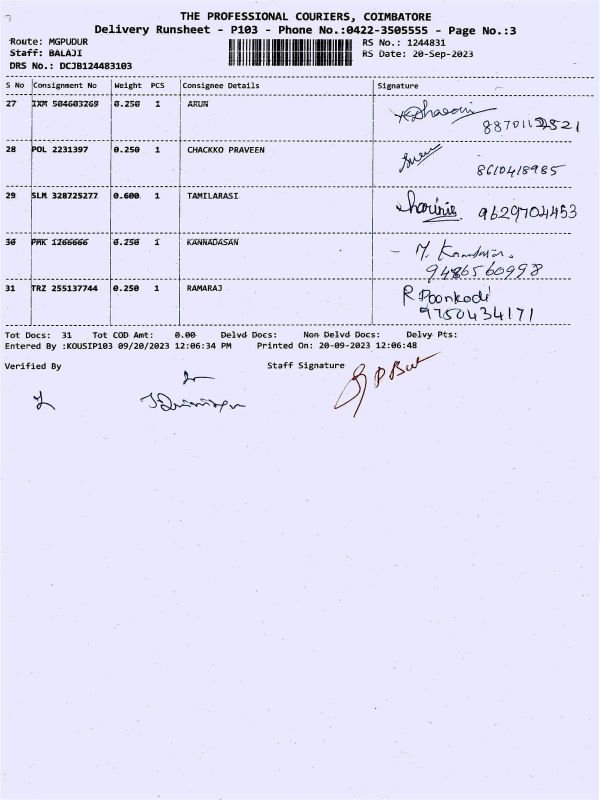 THE PROFESSIONAL COURIERS, COIMBATORE
Delivery Runsheet - P103 - Phone No.:0422-3505555 - Page No.:3
Route: MGPUDUR RS No.: 1244831
Staff: BALAJI RS Date: 20-Sep-2023
DRS No.: DCJB124483103
S No Consignment No Weight PCS Consignee Details Signature
27 IXM 504603269 0.250 1 ARUN
8870112521
28 POL 2231397 0.250 1 CHACKKO PRAVEEN
8610418985
29 SLM 328725277 0.600 1 TAMILARASI 9629704453
30 PMK 1266666 0.250 1 KANNADASAN
9486560998
31 TRZ 255137744 0.250 1 RAMARAJ R Poonkodi
9750434171
Tot Docs: 31 Tot COD Amt: 0.00 Delvd Docs: Non Delvd Docs: Delvy Pts:
Entered By :KOUSIP103 09/20/2023 12:06:34 PM Printed On: 20-09-2023 12:06:48
Verified By Staff Signature